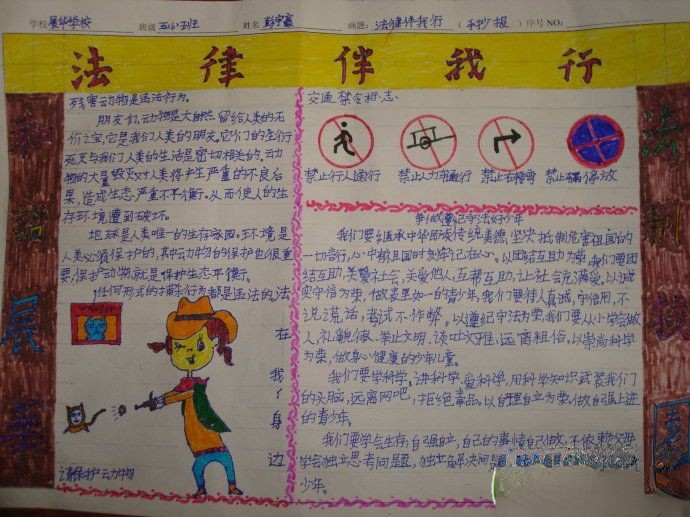 学校 展华学校 班级 五(6)班 姓名 彭宇 画题: 法律伴我行 (手抄报) 序号 NO:
法律伴我行
和谐展华
法制校
残害动物是违法行为。
朋友们,动物是大自然留给人类的无
价之宝,它是我们人类的朋友。它们的多衍
死灭与我们人类的生活是密切相关的。动
物的大量毁灭对人类将产生严重的不良后
果,造成生态严重不平衡。从而使人的生
存环境遭到破坏。
地球是人类唯一的生存家园。环境是
人类必须保护的,其中动物的保护也很重
要,保护动物,就是保护生态平衡。
任何形式的捕杀行为都是违法的法
在我们身边
WANTED
请保护动物
交通禁令标志
禁止行人通行 禁止人力车通行 禁止右转弯 禁止停放
争做遵纪守法好少年
我们要继承中华民族传统美德,坚决抵制危害祖国的
一切言行,心中有祖国时刻牢记在心。以团结互助为荣,我们要团
结互助,关爱社会,关爱他人,互帮互助,让社会充满爱。以诚
实守信为荣,做表里如一的青少年,我们要待人真诚,守信用,不
说谎话,考试不作弊。以遵纪守法为荣我们要从小学会做
人,礼貌人,举止文明、谈吐文雅,远离粗俗。以崇尚科学
为荣,做身心健康的少年儿童。
我们要学科学,讲科学,爱科学,用科学知识武装我们
的头脑,远离网吧,拒绝毒品。以自理自立为荣,做自强上进
的青少年。
我们要学会生存,自强自立,自己的事情自己做,不依赖父母
学会独立思考问题,独立解决问
少年。